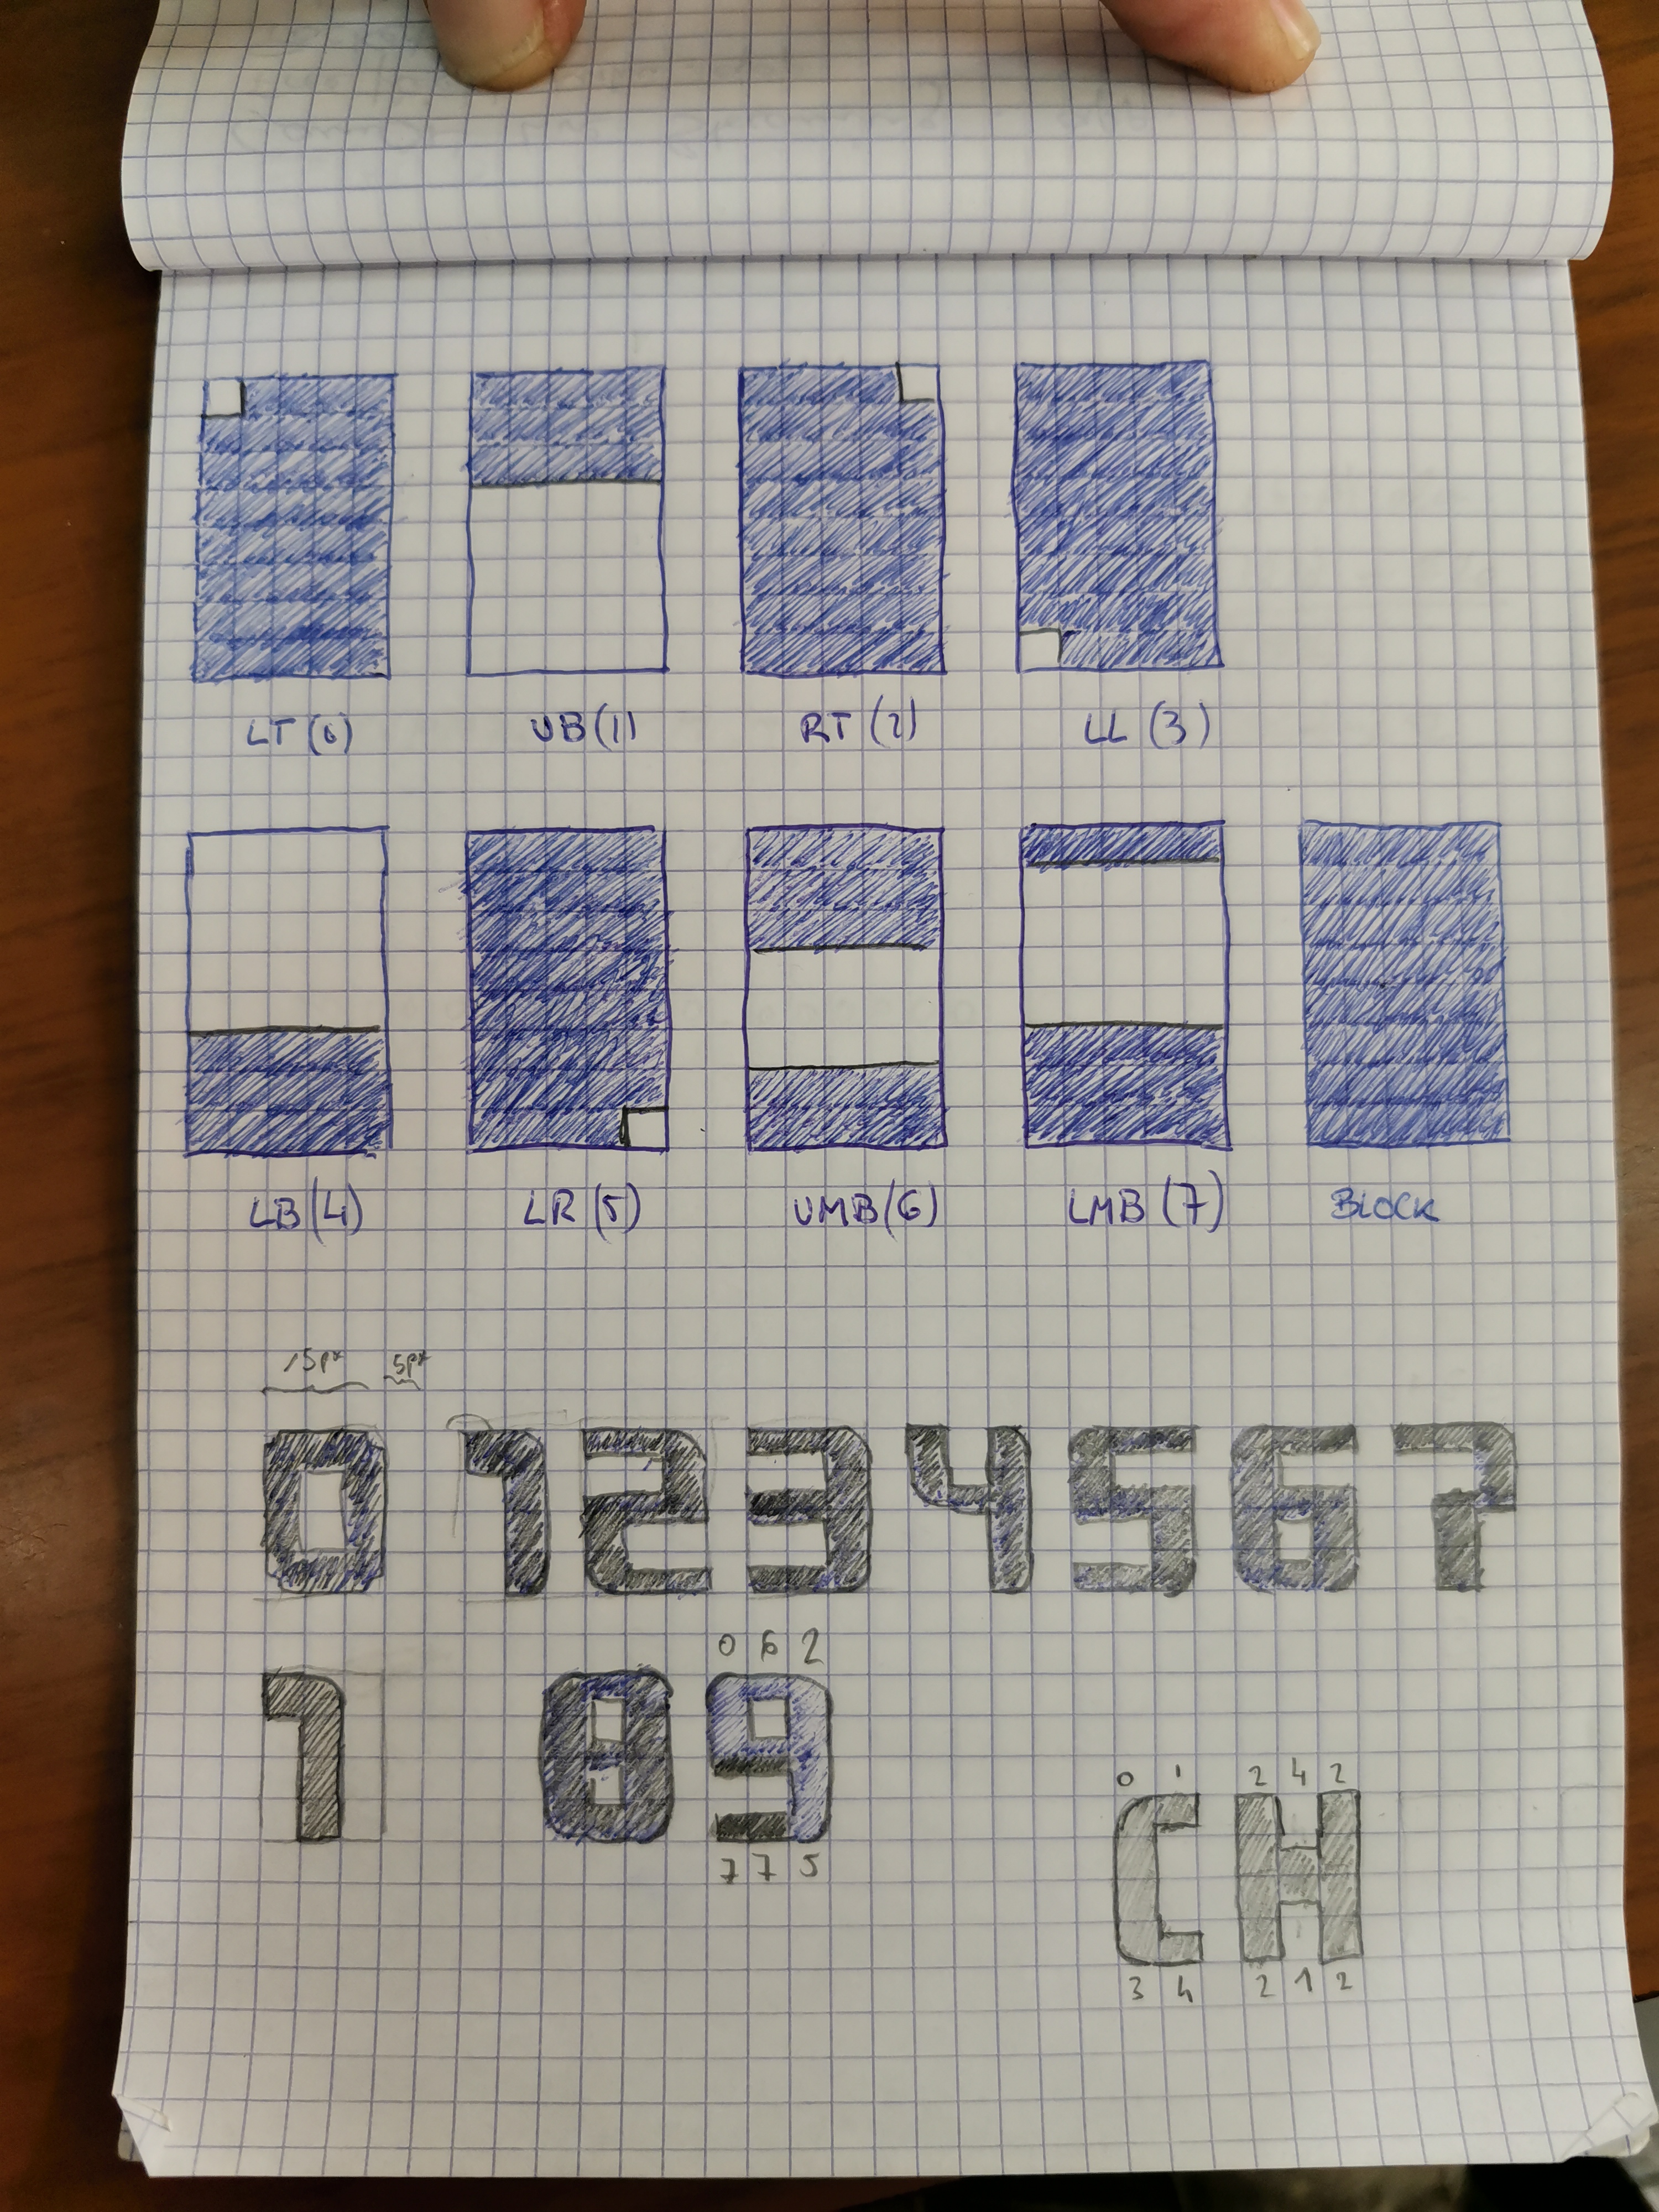 LT (0) UB (1) RT (2) LL (3)
LB (4) LR (5) UMB (6) LMB (7) BLOCK
15px 5px
0 1 2 3 4 5 6 7
0 6 2
1 8 9
7 7 5
0 1 2 4 2
C H
3 4 2 1 2